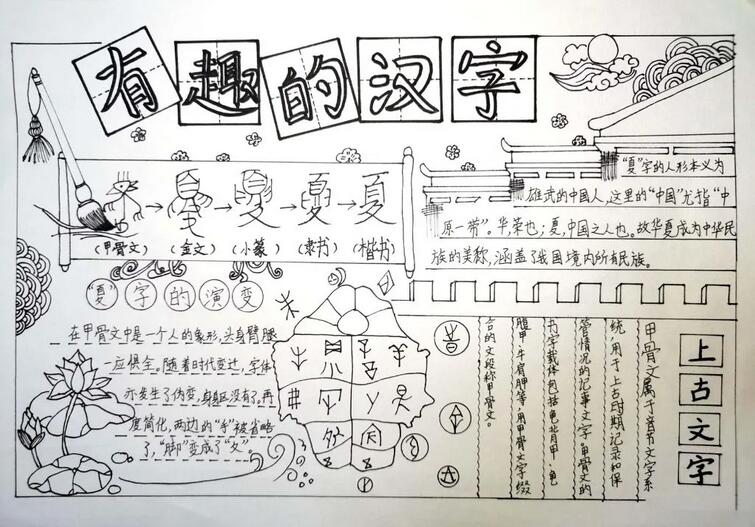 有趣的汉字
(甲骨文)
(金文)
(小篆)
(隶书)
夏
(楷书)
"夏"字的演变
在甲骨文中是一个人的象形,头身臂腿
一应俱全。随着时代变迁,字体
亦发生了伪变,身躯区没有了,再
度简化,两边的"手"被省略
了,"脚"变成了"夂"。
"夏"字的人形本义为
雄武的中国人,这里的"中国"尤指"中
原一带"。华,荣也;夏,中国之人也。故华夏成为中华民
族的美称,涵盖了我国境内所有民族。
上古文字
甲骨文属于音节文字系
统,用于上古时期记录和保
管情况的记事文字。甲骨文的
书字载体包括龟背甲、龟
腹甲、牛肩胛等,用甲骨文字缀
合的文段称甲骨文。